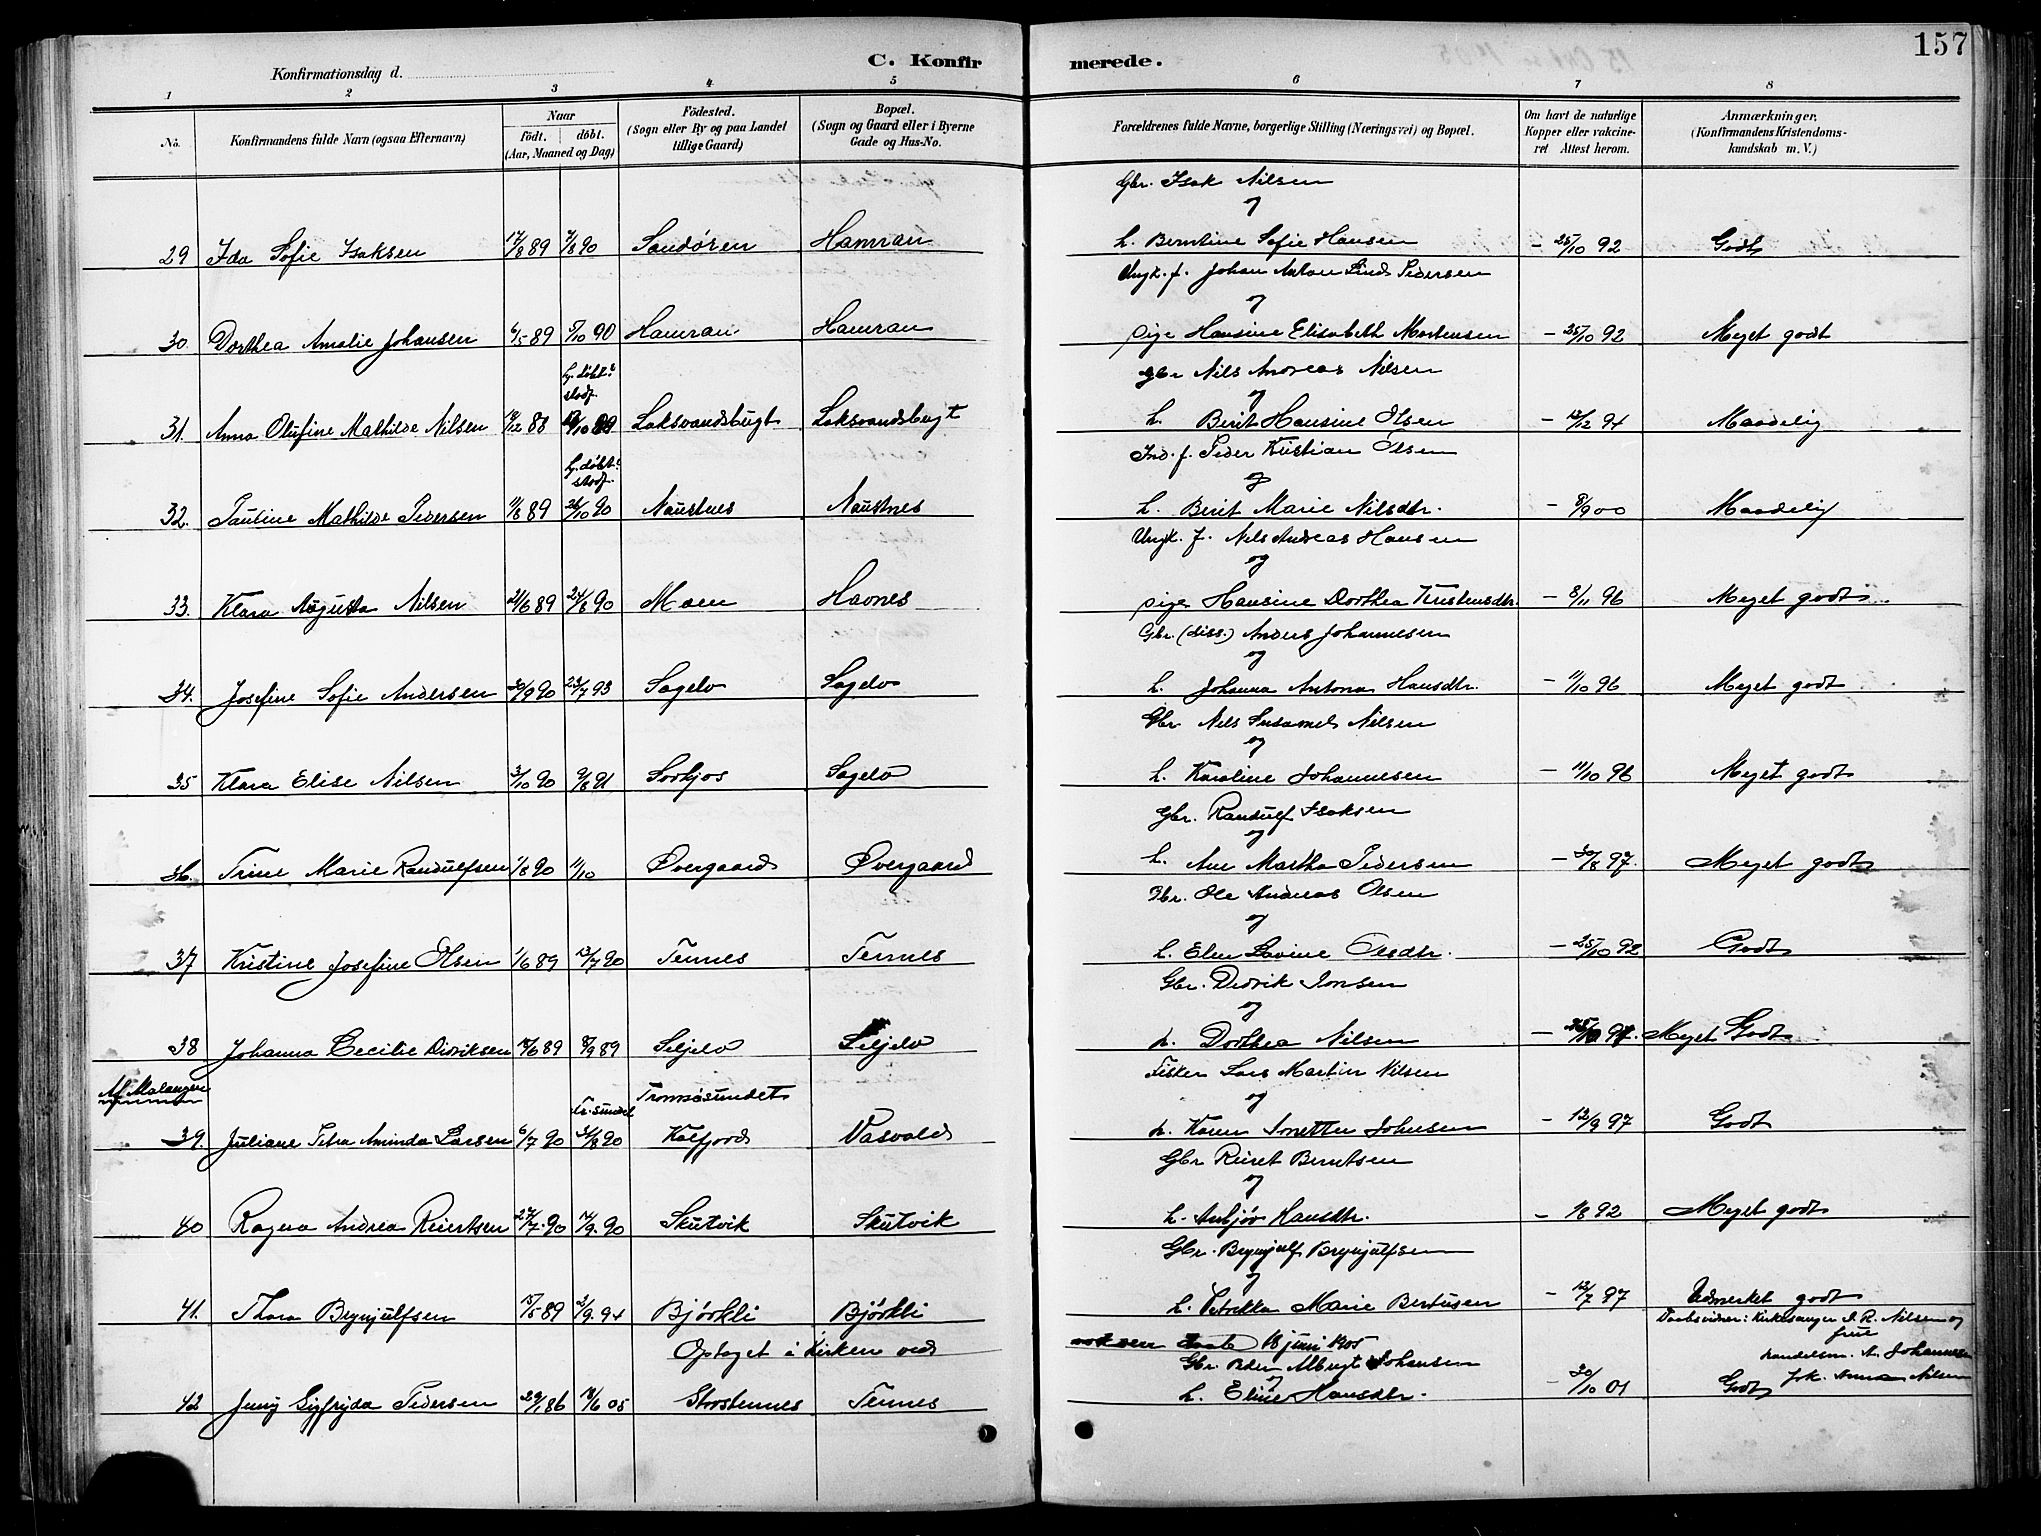 157
Konfirmationsdag d.
C. Konfirmerede.
1 2 3 4 5 6 7 8
No. Konfirmandens fulde Navn (ogsaa Efternavn) Naar födt. döbt. (Aar, Maaned og Dag) Födested. (Sogn eller By og paa Landet tillige Gaard) Bopæl. (Sogn og Gaard eller i Byerne Gade og Hus-No. Forældrenes fulde Navne, borgerlige Stilling (Næringsvei) og Bopæl. Om havt de naturlige Kopper eller vakcineret Attest herom. Anmærkninger. (Konfirmandens Kristendomskundskab m. V.)
Gbr. Isak Nilsen
og
29 Ida Sofie Isaksen 17/8 89 7/8 90 Sandøren Hamran h. Berntine Sofie Hansen - 25/10 92 Godt
Ungk. f. Johan Anton Lind Pedersen
og
30. Dorthea Amalie Johansen 6/5 89 5/10 90 Hamran Hamran pige Hansine Elisabeth Mortensen - 25/10 92 Meget godt
Gbr Nils Andreas Nilsen
hj. døbt
stadf.
og
31. Anna Olufine Mathilde Nilsen Laksvandsbugt Laksvandsbugt h. Berit Hansine Olsen - 12/12 94 Maadelig
Ind. f. Peder Kristian Olsen
hj. døbt
stadf.
og
32. Pauline Mathilde Pedersen 11/8 89 26/10 90 Naustnes Naustnes h. Berit Marie Nilsdtr. - 8/9 00 Maadelig
Ungk. f. Nils Andreas Hansen
og
33. Klara Augusta Nilsen 21/6 89 24/8 90 Moen Havnes pige Hansine Dorthea Kristensdtr. - 8/11 96 Meget godt
Gbr. (diss.) Anders Johannesen
og
34. Josefine Sofie Andersen 30/9 90 23/7 93 Sagelv Sagelv h. Johanna Antona Hansdtr. - 11/10 96 Meget godt
Gbr Nils Susamel Nilsen
og
35 Klara Elise Nilsen 3/10 90 9/8 91 Sorkjos Sagelv h. Karoline Johannesen - 11/10 96 Meget godt
Gbr. Randulf Isaksen
og
36. Trine Marie Randulfsen 1/8 90 11/10 Øvergaard Øvergaard h. Ane Martha Pedersen - 30/8 97. Meget godt
Gbr. Ole Andreas Olsen
og
37 Kristine Josefine Olsen 1/6 89 13/7 90 Tennes Tennes h. Elen Lovine Olsdtr. - 25/10 92 Godt
Gbr. Didrik Jonsen
og
38 Johanna Cecilie Didriksen 8/9 89 Seljelv Seljelv h. Dorthea Nilsen Meget Godt
Af Malangen
Fisker Lars Martin Nilsen
Tr.sundet Tromsøsundet
og
39. Juliane Petra Aminda Larsen 6/7 90 31/8 90 Kalfjord Vasvald h. Karen Jonette Johnsen - 12/9 97 Godt
Gbr Reiret Berntsen
og
40 Ragna Andrea Reiertsen 27/7. 90 14/9. 90 Skutvik Skutvik h. Anbjør Hansdtr. - 1/8 92 Meget godt
Gbr. Brynjulf Brynjulfsen
og
41. Thora Brynjulfsen 15/5 89 3/9. 94 Bjørkli Bjørkli h. Petrikka Marie Bertusen - 12/7 97 Udmerket godt
Optaget i Kirken ved 18 juni 1905
Daabsvidner: Kirkesanger I. R. Nilsen og frue
handelsm. A. Johannesen
Gbr Peder Albrigt Johansen
og
Jfk. Anna Nilsen
42 Jenny Sigfryda Pedersen 29/1 86 18/6 05 Storstennes Tennes h. Eline Hansdtr. - 30/10 01 Godt